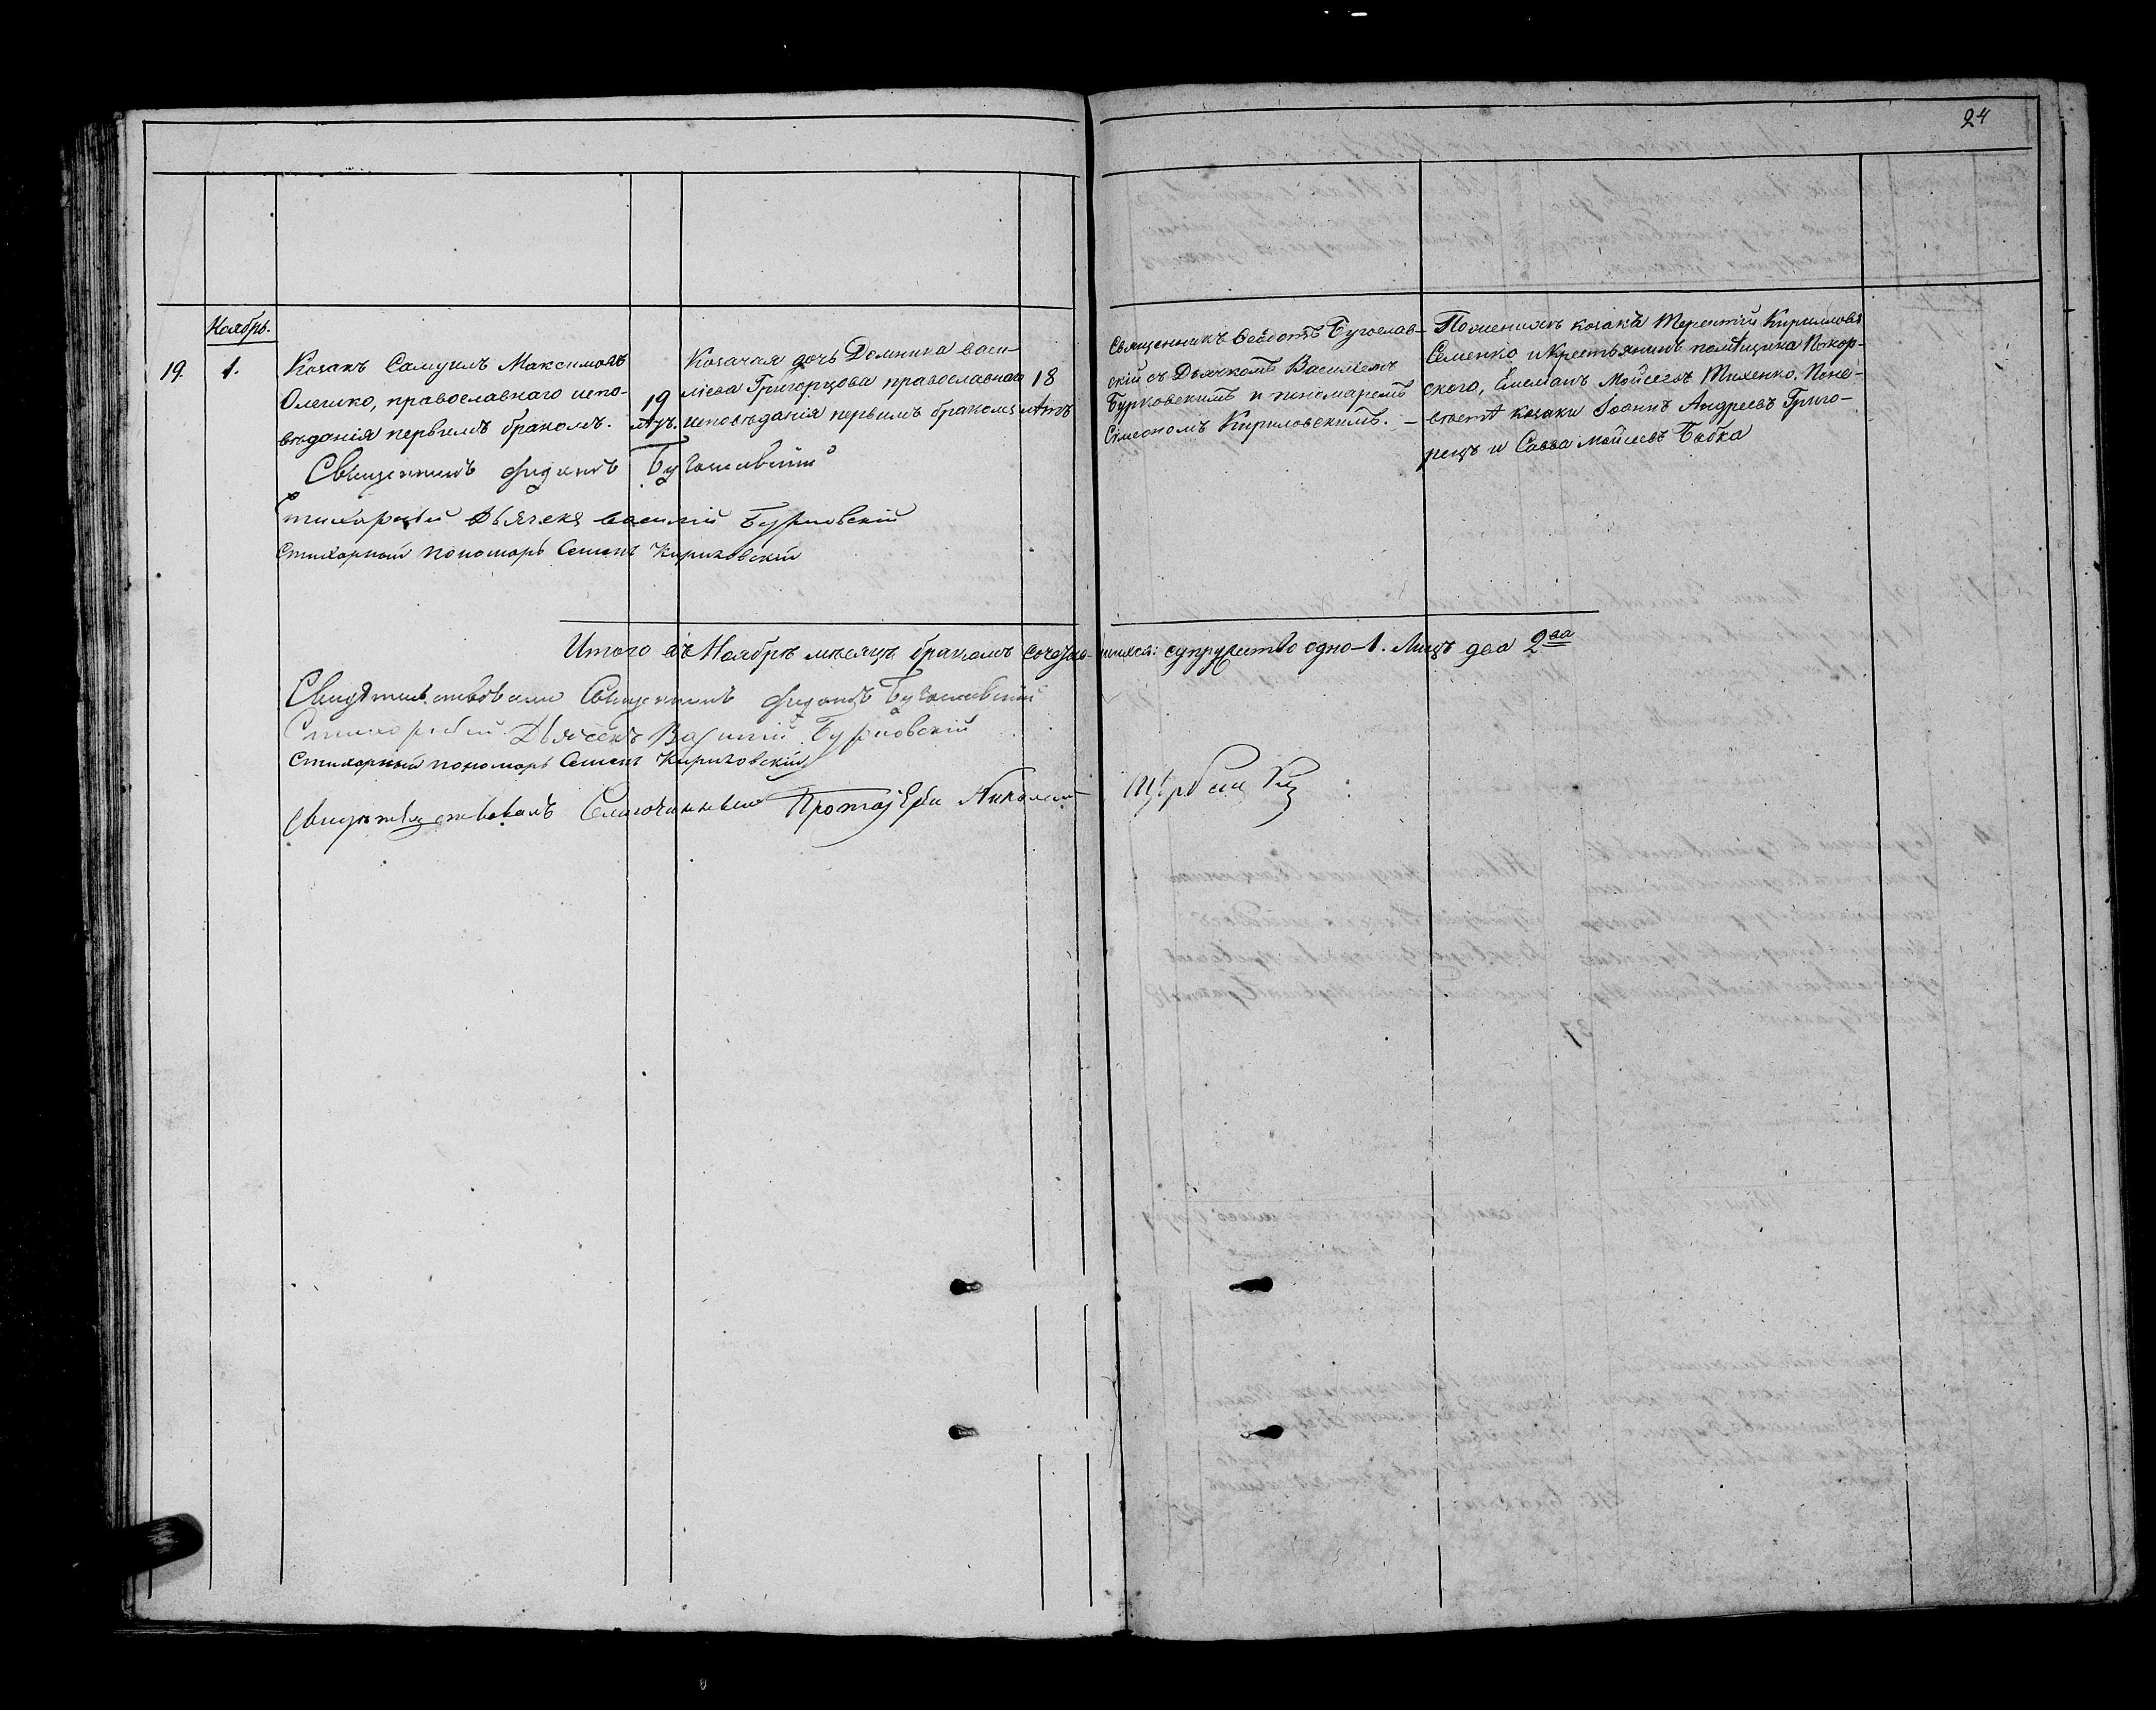 24
Ноябрь.
19. 1.
Козакъ Самуилъ Максимовъ
Олешко, православнаго испо-
вѣданія первымъ бракомъ.
19
лѣтъ.
Козачая дочь Домника Васи-
ліева Григорцова православнаго
исповѣданія первымъ бракомъ
18
лѣтъ
Священникъ Ѳеодотъ Бугослав-
скій съ Дьячкомъ Василіемъ
Бурковскимъ и пономаремъ
Симеономъ Кириловскимъ. –
По женихѣ козакъ Терентій Кирилловъ
Семенко и Крестьянинъ помѣщика Покор-
ского, Емеліанъ Мойсеевъ Тихенко, По не-
вѣстѣ козаки Іоаннъ Андреевъ Григо-
рецъ и Савва Мойсеевъ Бабка
Священникъ Федотъ Бугославскій
Стихарный Дьячекъ Василій Бурковскій
Стихарный пономарь Семенъ Кириловскій
Итого въ Ноябрѣ мѣсяцѣ бракомъ сочетав-шихся: супружество одно – 1. Лицъ два 2ва
Свидѣтельствовали Священникъ Федотъ Бугославскій
Стихарный Дьячекъ Василій Бурковскій
Стихарный пономарь Семенъ Кириловскій
Свидѣтельствовалъ Благочинный Протоіерей Николай